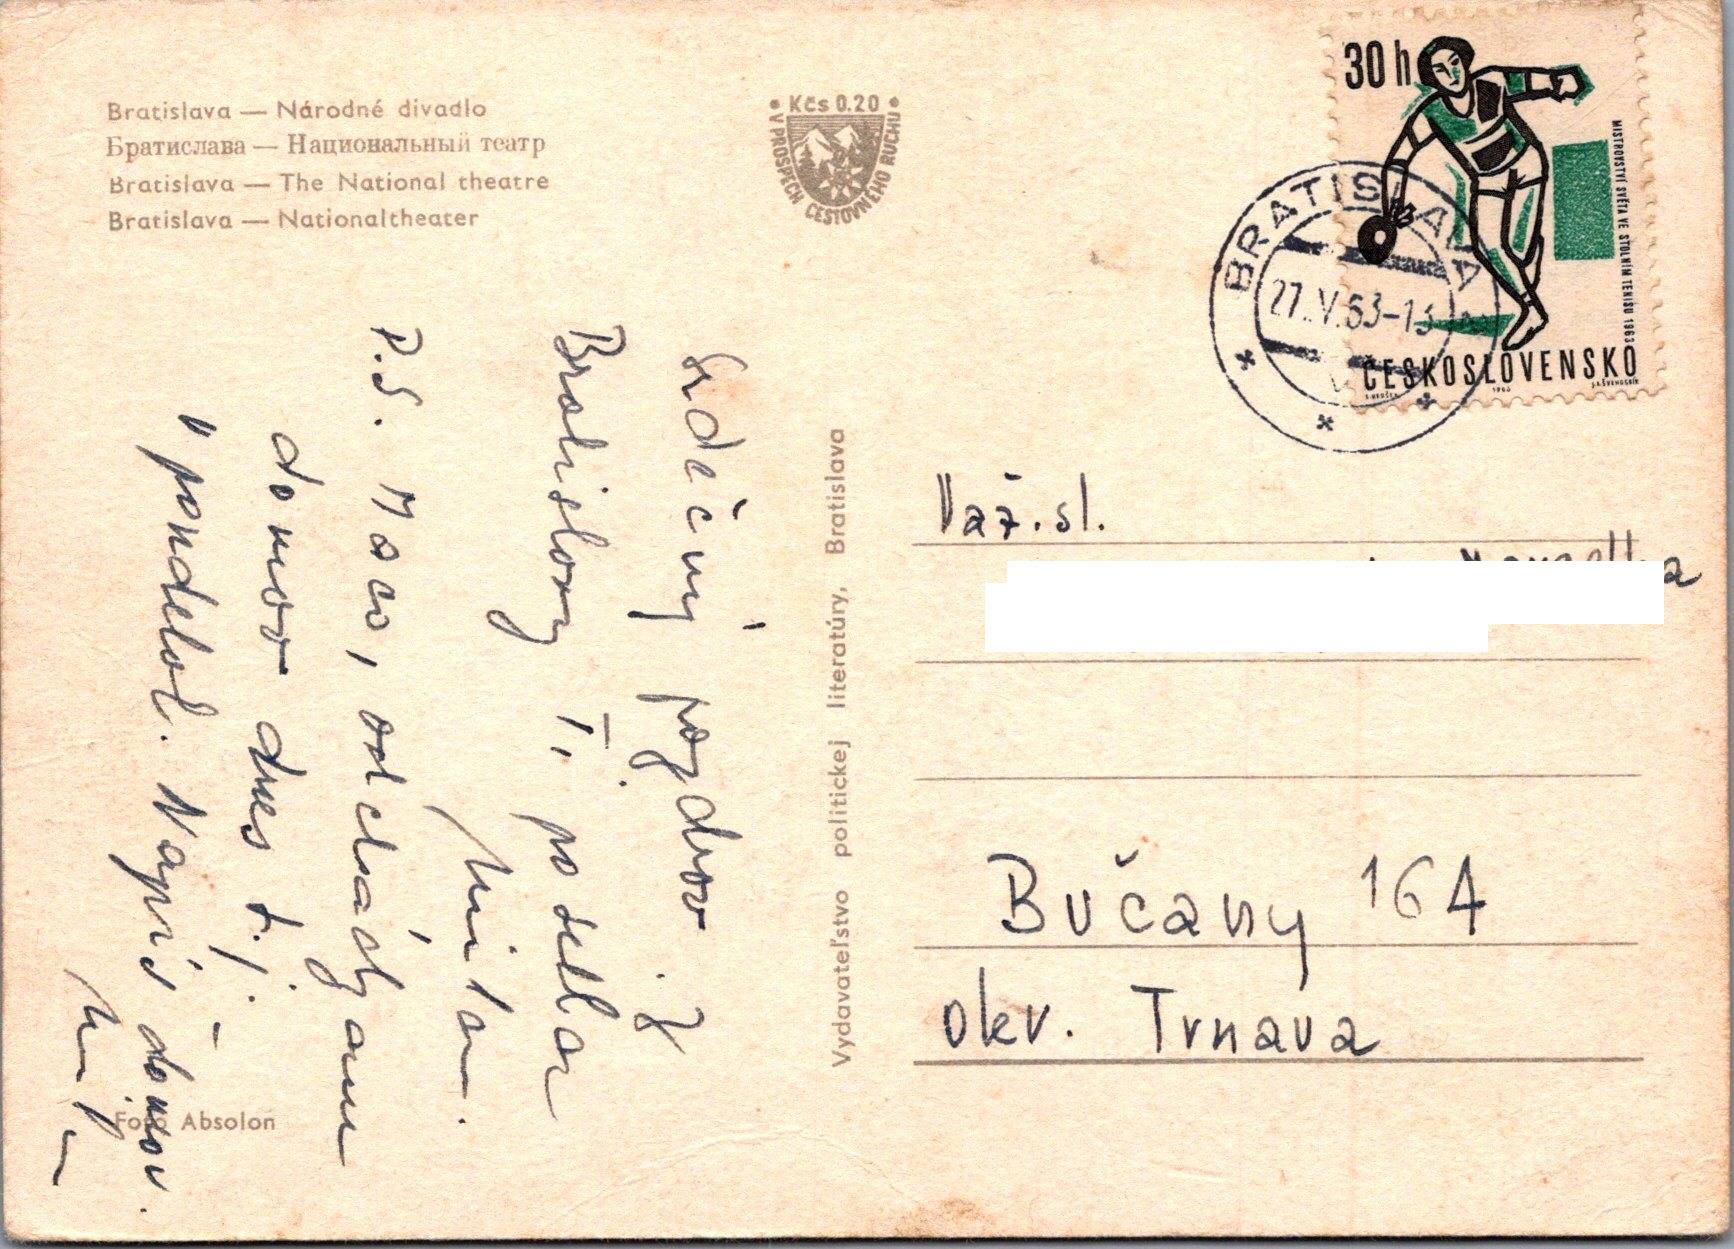 Bratislava — Národné divadlo
Братислава — Национальный театр
Bratislava — The National theatre
Bratislava — Nationaltheater
• Kčs 0.20 •
V PROSPECH CESTOVNÉHO RUCHU
30 h
MISTROVSTVÍ SVĚTA VE STOLNÍM TENISU 1963
ČESKOSLOVENSKO
1963
BRATISLAVA
27.V.63-13
Srdečný pozdrav z
Bratislavy Ti posiela
Milan.
P.S. odchádzam
domov dnes t.j.
v pondelok. Napíš domov.
Mil
Vydavateľstvo politickej literatúry, Bratislava
Foto Absolon
Váž. sl.
Bučany 164
okr. Trnava